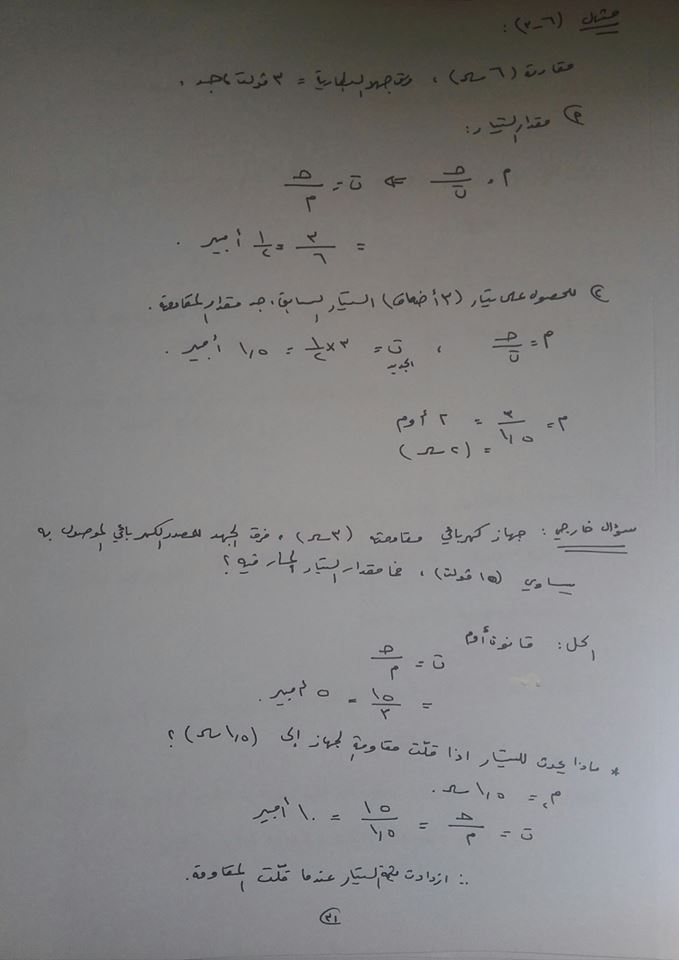 مثال (٦-٣):
مقاومة (٦ س)، فرق جهد البطارية = ٣ ڤولت، جد.
① مقدار التيار:
م = جـ/ت ⇐ ت = جـ/م
= ٣/٦ = ١/٢ أمبير.
② للحصول على تيار (٣ أضعاف) التيار السابق، جد مقدار المقاومة.
م = جـ/ت ، ت الجديد = ٣×١/٢ = ١,٥ أمبير.
م = ٣/١,٥ = ٢ أوم
= (٢ س)
سؤال خارجي: جهاز كهربائي مقاومته (٣ س)، فرق الجهد للمصدر الكهربائي الموصول به
يساوي (١٥ ڤولت)، فما مقدار التيار المار فيه؟
الحل: قانون أوم
ت = جـ/م
= ١٥/٣ = ٥ أمبير.
* ماذا يحدث للتيار اذا قلّت مقاومة الجهاز إلى (١,٥ س)؟
م٢ = ١,٥ س.
ت = جـ/م = ١٥/١,٥ = ١٠ أمبير
∴ ازدادت قيمة التيار عندما قلّت المقاومة.
٣١